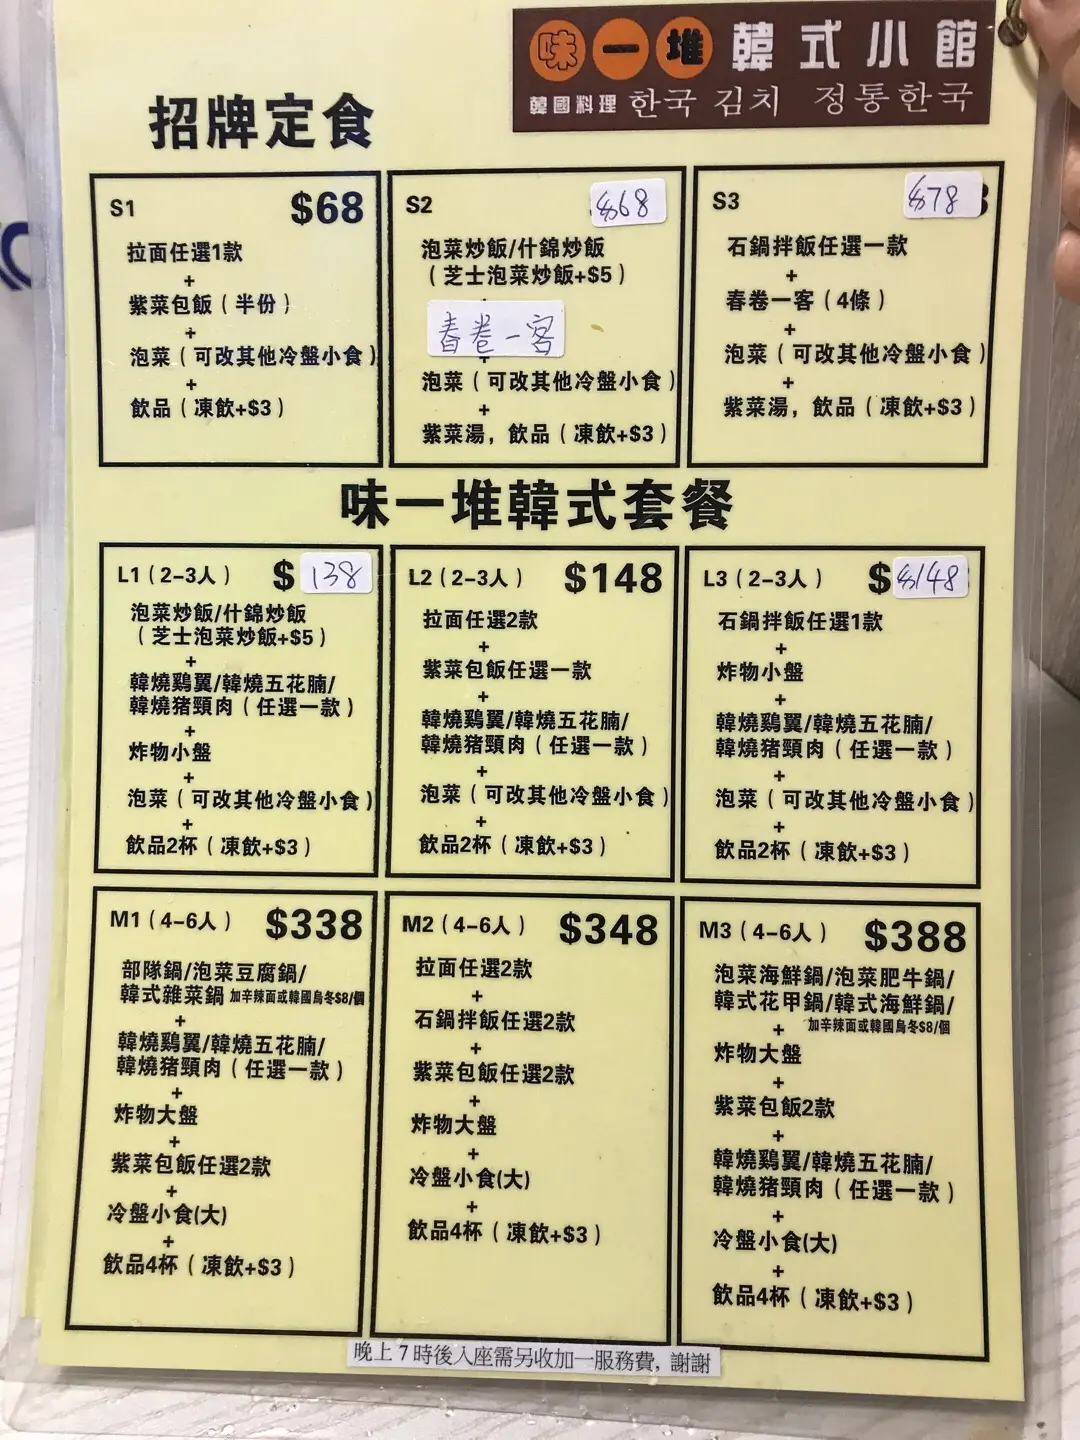 味一堆 韓式小館
韓國料理 한국 김치 정통한국
招牌定食
S1 $68
拉面任選1款
+
紫菜包飯（半份）
+
泡菜（可改其他冷盤小食）
+
飲品（凍飲+$3）
S2 $68
泡菜炒飯/什錦炒飯
（芝士泡菜炒飯+$5）
春卷一客
+
泡菜（可改其他冷盤小食）
+
紫菜湯，飲品（凍飲+$3）
S3 $78
石鍋拌飯任選一款
+
春卷一客（4條）
+
泡菜（可改其他冷盤小食）
+
紫菜湯，飲品（凍飲+$3）
味一堆韓式套餐
L1（2-3人） $138
泡菜炒飯/什錦炒飯
（芝士泡菜炒飯+$5）
+
韓燒鷄翼/韓燒五花腩/
韓燒猪頸肉（任選一款）
+
炸物小盤
+
泡菜（可改其他冷盤小食）
+
飲品2杯（凍飲+$3）
L2（2-3人） $148
拉面任選2款
+
紫菜包飯任選一款
+
韓燒鷄翼/韓燒五花腩/
韓燒猪頸肉（任選一款）
+
泡菜（可改其他冷盤小食）
+
飲品2杯（凍飲+$3）
L3（2-3人） $$148
石鍋拌飯任選1款
+
炸物小盤
+
韓燒鷄翼/韓燒五花腩/
韓燒猪頸肉（任選一款）
+
泡菜（可改其他冷盤小食）
+
飲品2杯（凍飲+$3）
M1（4-6人） $338
部隊鍋/泡菜豆腐鍋/
韓式雜菜鍋 加辛辣面或韓國烏冬$8/個
+
韓燒鷄翼/韓燒五花腩/
韓燒猪頸肉（任選一款）
+
炸物大盤
+
紫菜包飯任選2款
+
冷盤小食(大)
+
飲品4杯（凍飲+$3）
M2（4-6人） $348
拉面任選2款
+
石鍋拌飯任選2款
+
紫菜包飯任選2款
+
炸物大盤
+
冷盤小食(大)
+
飲品4杯（凍飲+$3）
M3（4-6人） $388
泡菜海鮮鍋/泡菜肥牛鍋/
韓式花甲鍋/韓式海鮮鍋/
+ 加辛辣面或韓國烏冬$8/個
炸物大盤
+
紫菜包飯2款
+
韓燒鷄翼/韓燒五花腩/
韓燒猪頸肉（任選一款）
+
冷盤小食(大)
+
飲品4杯（凍飲+$3）
晚上7時後入座需另收加一服務費，謝謝